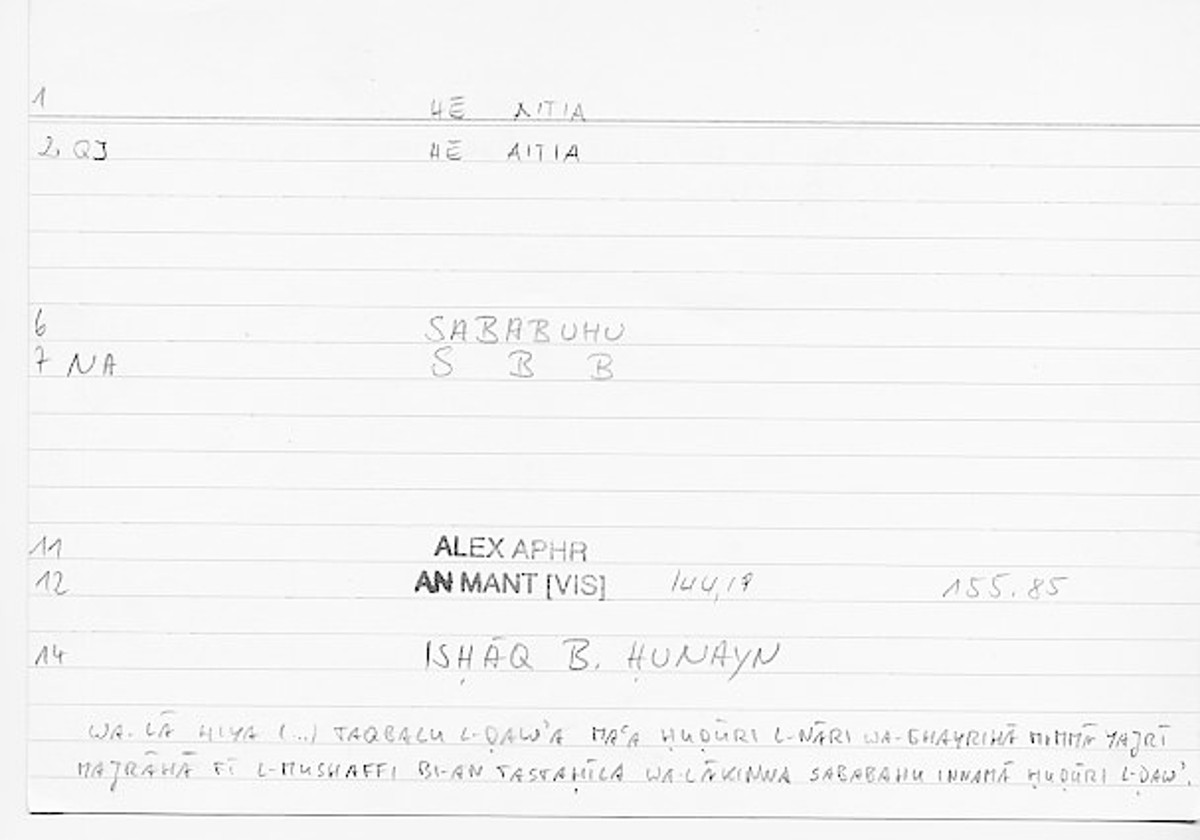 1 HĒ AITIA
2 QI HĒ AITIA
6 SABABUHU
7 NA S B B
11 ALEX APHR
12 AN MANT [VIS] 144,19 155.85
14 ISḤĀQ B. ḤUNAYN
WA-LĀ HIYA (...) TAQBALU L-ḌAWʾA MAʿA ḤUḌŪRI L-NĀRI WA-GHAYRIHĀ MIMMĀ YAJRĪ
MAJRĀHĀ FĪ L-MUSHAFFI BI-AN TASTAḤĪLA WA-LĀKINNA SABABAHU INNAMĀ ḤUḌŪRI L-ḌAWʾ.